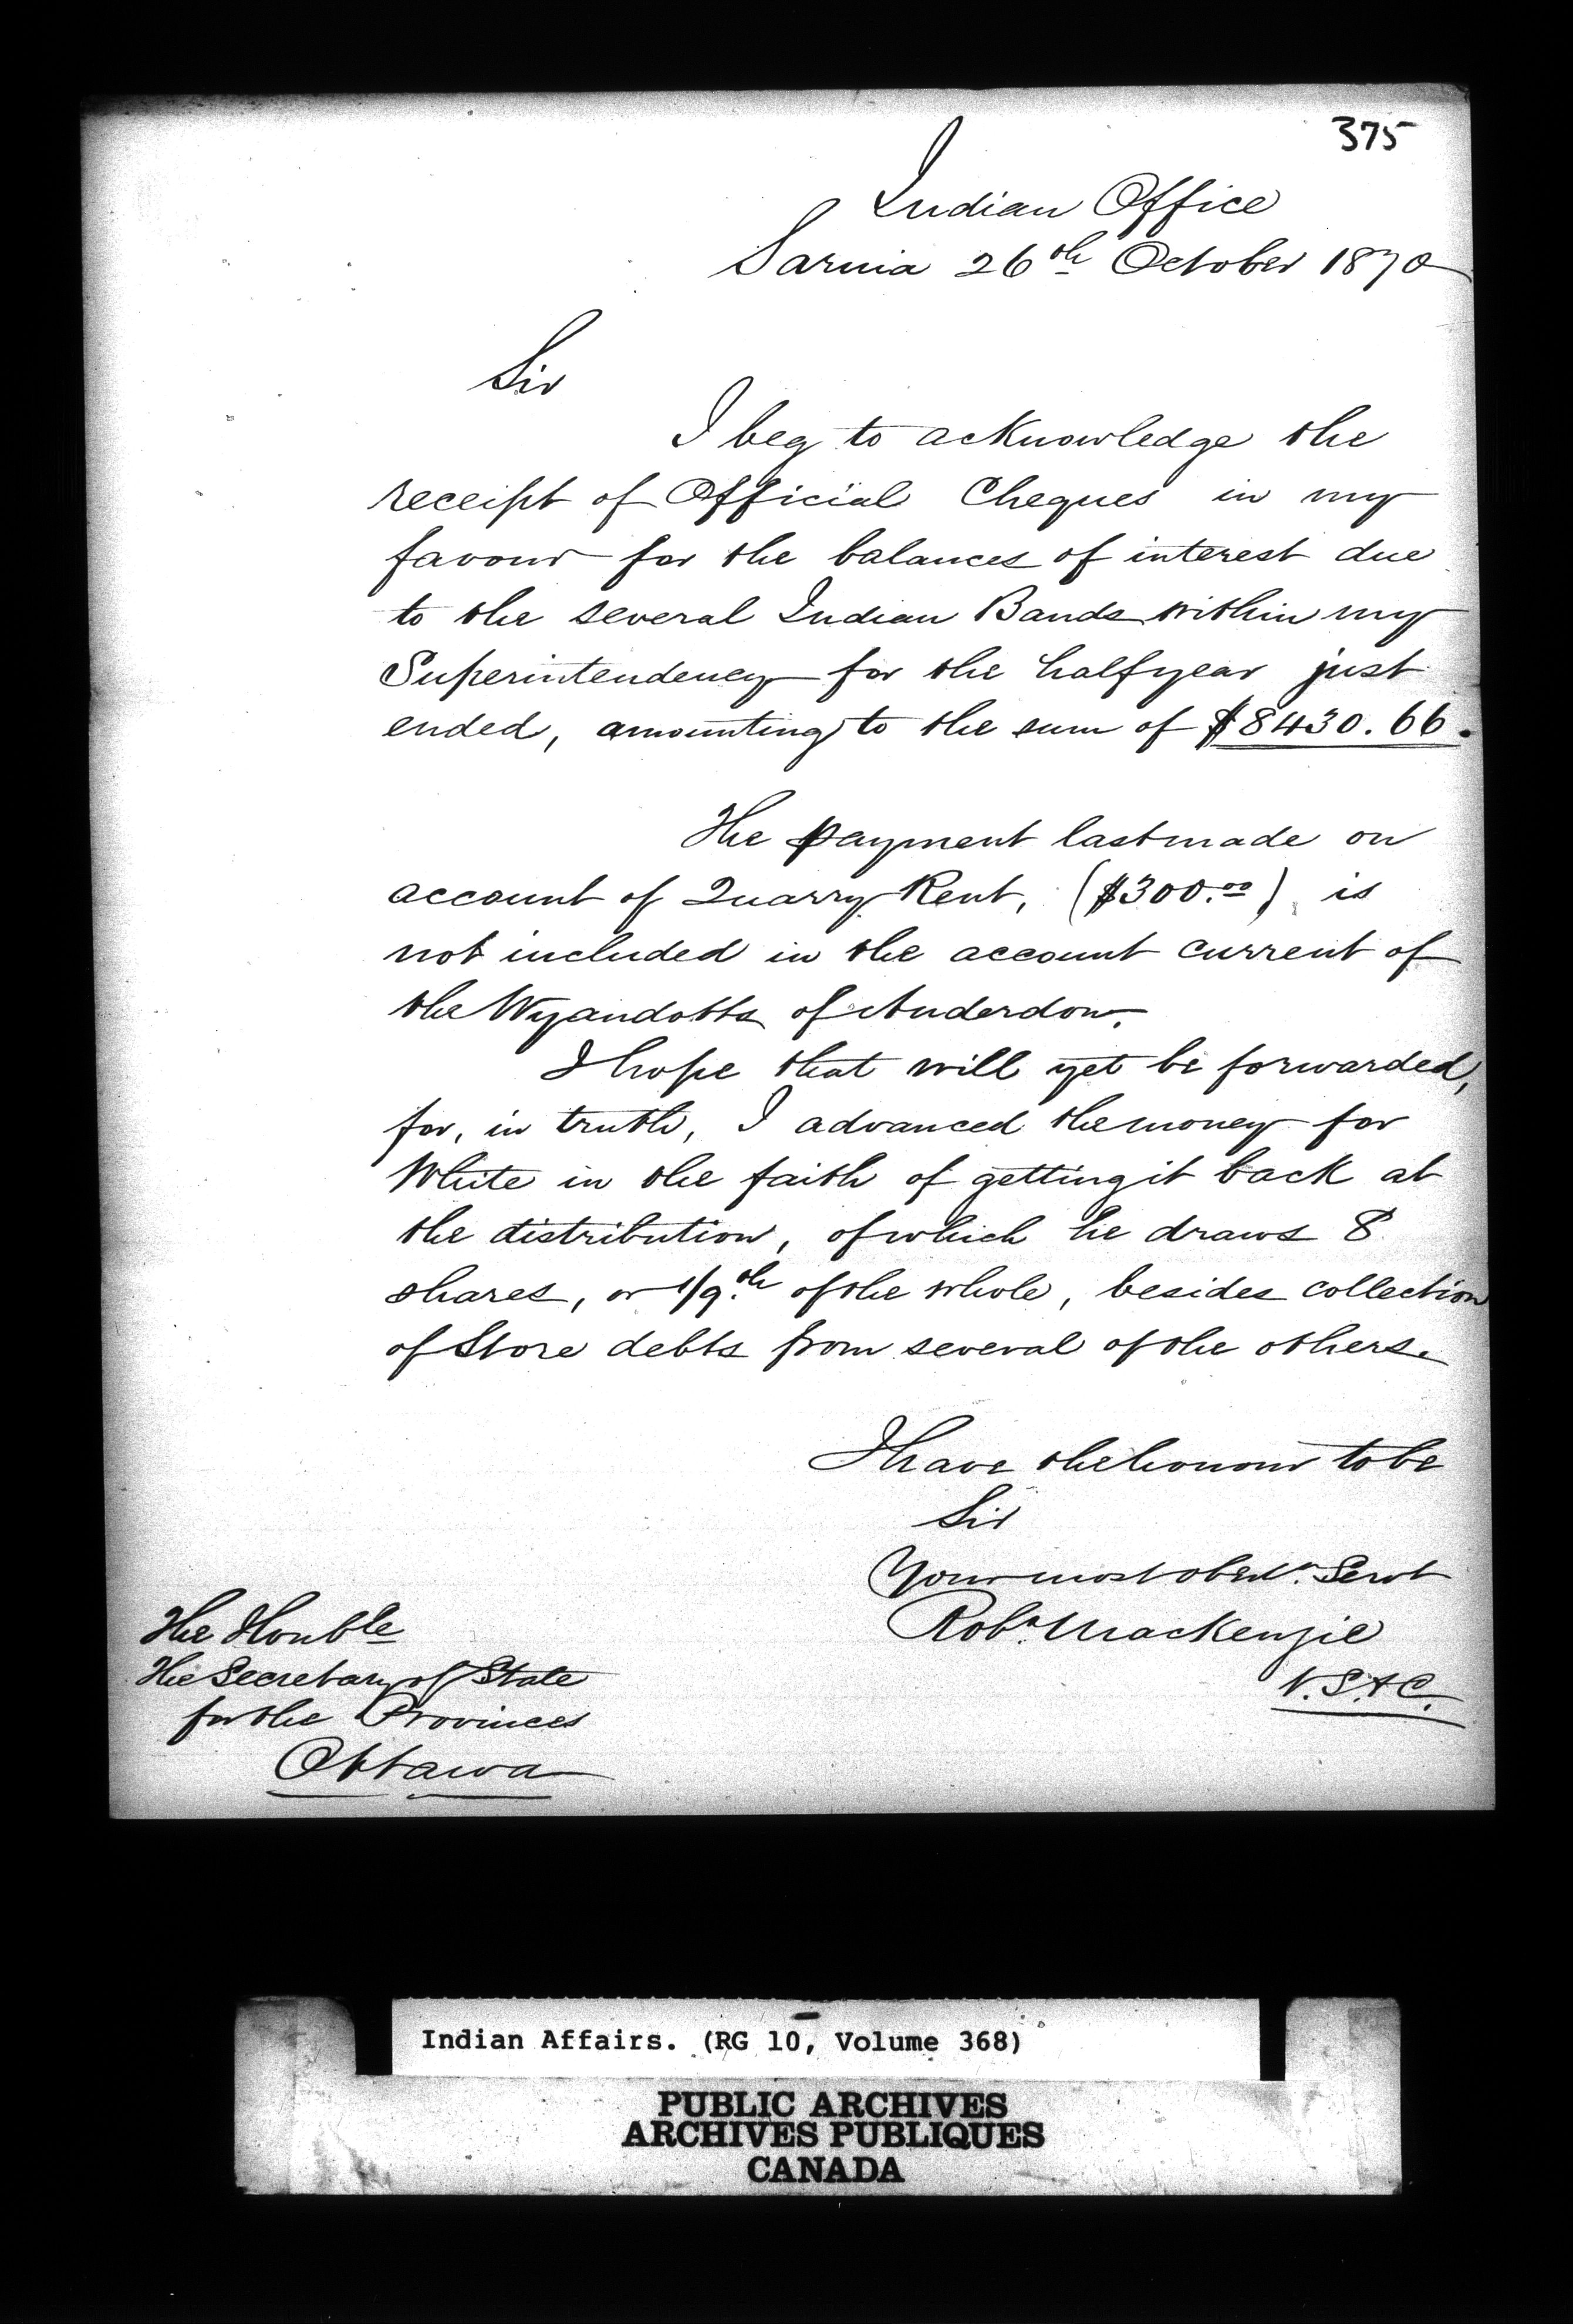 375
Indian Office
Sarnia 26th October 1870
Sir
I beg to acknowledge the
receipt of Official Cheques in my
favour for the balances of interest due
to the several Indian Bands within my
Superintendency for the halfyear just
ended, amounting to the sum of $8430.66.
The payment last made on
account of Quarry Rent, ($300.00) is
not included in the account current of
the Wyandotts of Anderdon.
I hope that will yet be forwarded,
for, in truth, I advanced the money for
White in the faith of getting it back at
the distribution, of which he draws 8
shares, or 1/9.th of the whole, besides collection
of Store debts from several of the others.
I have the honour to be
Sir
Your most obedt. Servt
Robt. Mackenzie
V.S.&C.
The Honble
The Secretary of State
for the Provinces
Ottawa
Indian Affairs. (RG 10, Volume 368)
PUBLIC ARCHIVES
ARCHIVES PUBLIQUES
CANADA